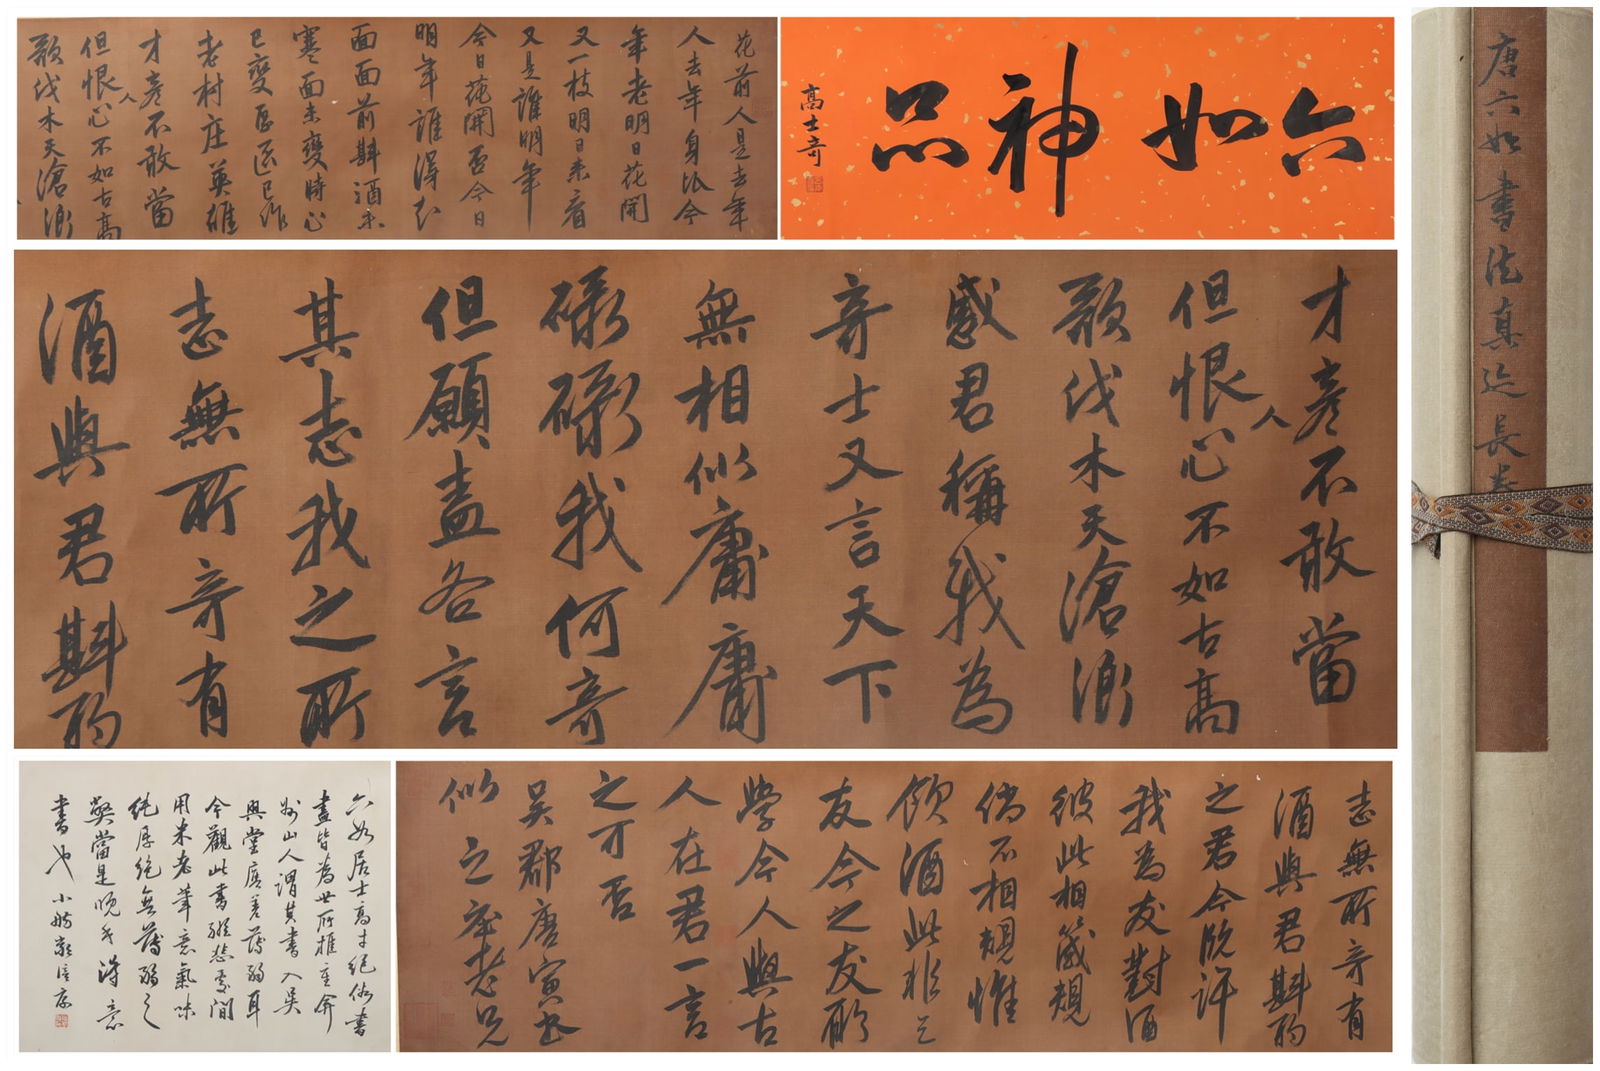 六如神品
高士奇
花前人是去年
人去年身比今
年老明日花開
又一枝明日來看
又是誰明年
今日花開否今日
明年誰得知
面面前斟酒未
寒面未變時心
已變區區已作
老村庄英雄
才彥不敢當
但恨人心不如古高
歌伐木天滄浪
才彥不敢當
但恨人心不如古高
歌伐木天滄浪
感君稱我為
奇士又言天下
無相似庸庸
碌碌我何奇
但願盡各言
其志我之所
志無所奇有
酒與君斟酌
志無所奇有
酒與君斟酌
之君今既許
我為友對酒
彼此相箴規
倘不相規惟
飲酒此非
友今之友聊
學今人與古
人在君一言
之可否
吳郡唐寅書
似立齋老兄
六如居士高才絕俗書
畫皆為世所推重弇
州山人謂其書入吳
興堂廡差薄弱耳
今觀此書間
用米老筆意氣味
純厚絕無薄弱之
弊當是晚年得意
書也 小舫
唐六如書法真迹長卷